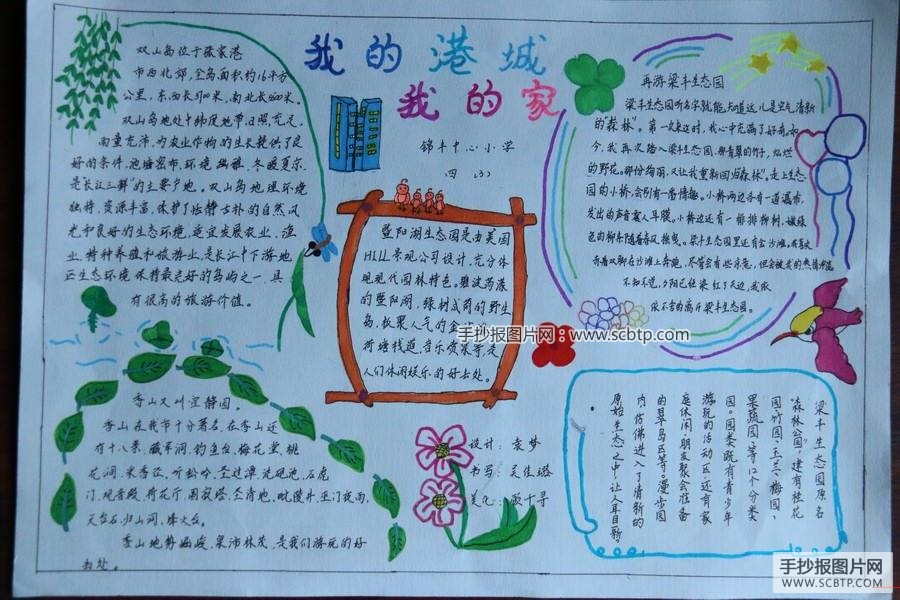 我的港城
我的家
锦丰中心小学
四（3）
双山岛位于张家港
市西北部，全岛面积约16平方
公里，东西长5100米，南北长3500米。
双山岛地处中纬度地带，日照充足，
雨量充沛，为农业作物的生长提供了良
好的条件，池塘密布，环境幽雅，冬暖夏凉，
是"长江三鲜"的主要产地。双山岛地理环境
独特，资源丰富，保护了恬静古朴的自然风
光和良好的生态环境，适宜发展农业、渔
业、特种养殖和旅游业，是长江中下游地
区生态环境保持最完好的岛屿之一，具
有很高的旅游价值。
再游梁丰生态园
梁丰生态园听名字就能知道这儿是空气清新
的"森林"。第一次来这时，我心中充满了好奇。如
今，我再次踏入梁丰生态园，那青翠的竹子，灿烂
的野花，那份绚丽，又让我重新回归"森林"。走上生态
园的小桥，会别有一番情趣。小桥两边各有一道瀑布，
发出的声音震人耳膜。小桥边还有一排排柳树，嫩绿
色的柳条随着春风摇曳。梁丰生态园里还有金沙滩，我喜欢
赤着双脚在沙滩上奔跑，尽管会有些凉意，但会被我的热情冲淡。
不知不觉，夕阳已经染红了天边，我依
依不舍的离开梁丰生态园。
暨阳湖生态园是由美国
HILL景观公司设计，充分体
现现代园林特色。碧波荡漾
的暨阳湖，绿树成荫的野生
岛，极聚人气的金
荷塘栈道，音乐喷泉等，是
人们休闲娱乐的好去处。
手抄报图片网：www.scbtp.com
香山又叫宜静园。
香山在我市十分著名，在香山还
有十八景，藏军洞，钓鱼台，梅花堂，桃
花涧，采香径，听松岭，圣过潭，洗砚池，石虎
门，观音殿，荷花厅，圆寂塔，圣清池，
天台石，归山洞，烽火台。
香山地势幽峻，果沛林茂，是我们游玩的好
去处。
设计：袁梦
书写：吴佳璐
美化：顾千寻
梁丰生态园原名
"森林公园"，建有桂花
园、竹园、玉兰、梅园、
果蔬园等12个分类
园。园类既有青少年
游玩的活动区还有家
庭休闲朋友聚会准备
的草岛区等。漫步园
内仿佛进入了清新的
原始生态之中，让人耳目新。
手抄报图片网
WWW.SCBTP.COM